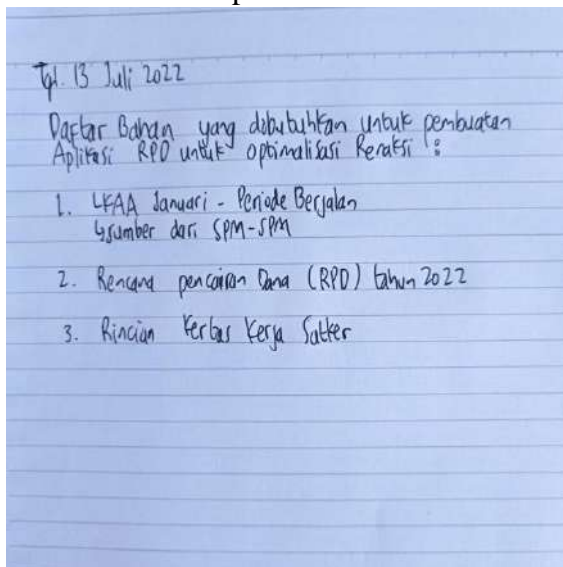 Tgl. 13 Juli 2022
Daftar Bahan yang dibutuhkan untuk pembuatan
Aplikasi RPD untuk optimalisasi Reraksi :
1. LKAA Januari - Periode Berjalan
↳ sumber dari SPM-SPM
2. Rencana pencairan Dana (RPD) tahun 2022
3. Rincian Kertas Kerja Satker